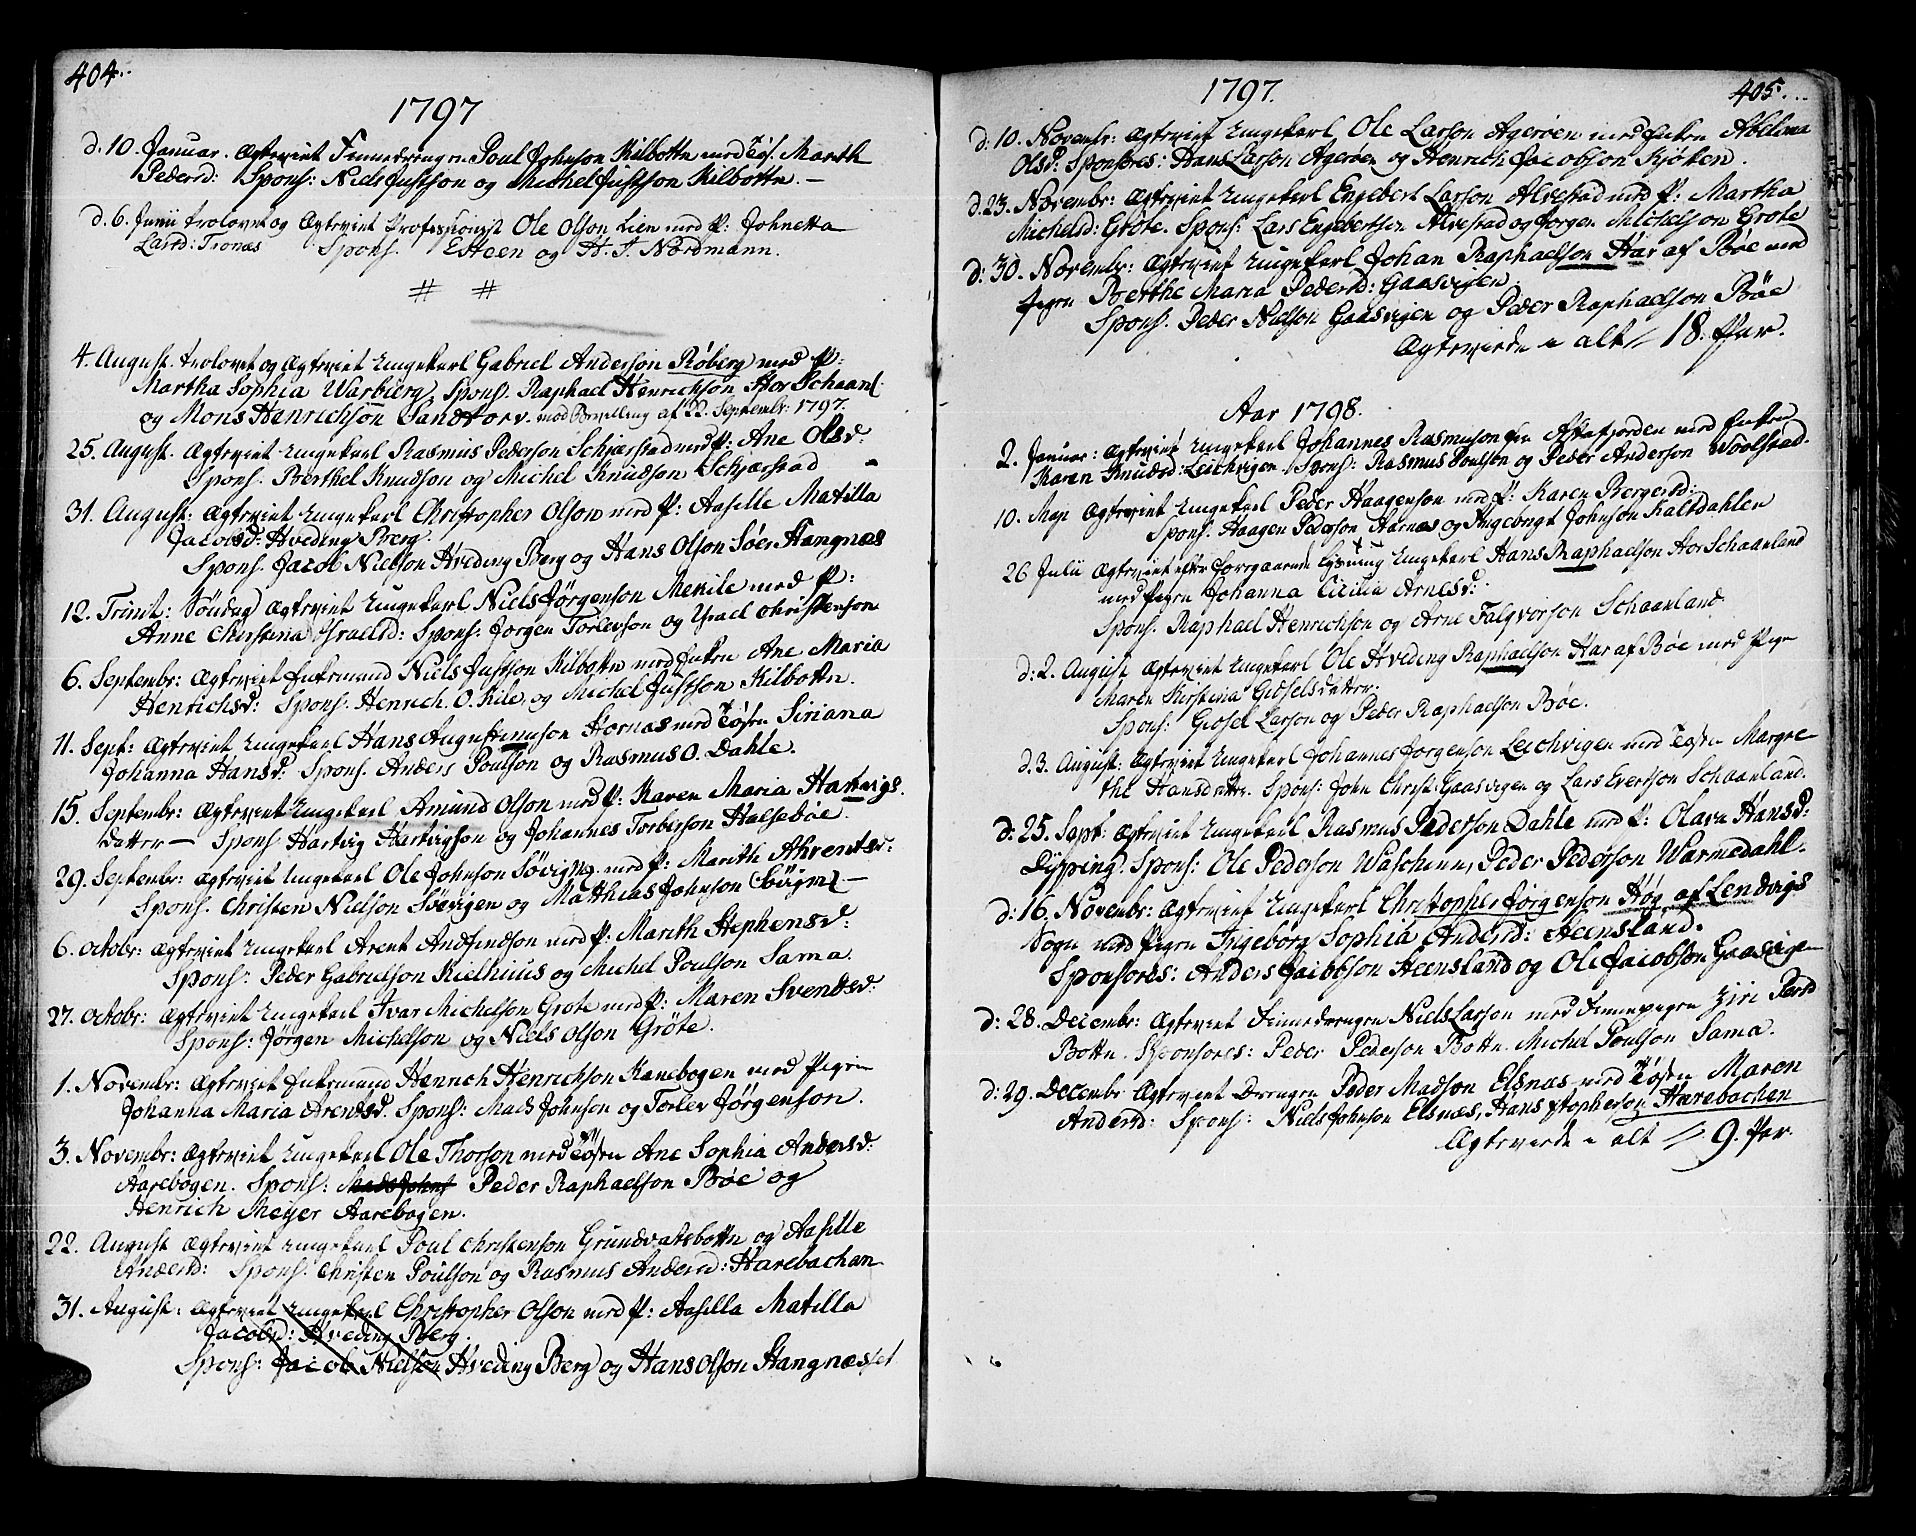 404.
1797
d. 10. Januar. Ægteviet Finnedrengen Poul Johnson Kilbottn med Tøs. Marth
Pedersd: Spons: Niels Justson og Michel Justson Kilbottn. —
d. 6. Junii trolovet og Ægteviet Professionist Ole Olson Lien med P: Johnetta
Larsd: Tronæs Spons. E Steen og H. J. Nordmann.
# #
4. August. trolovet og Ægteviet Ungekarl Gabriel Anderson Røberg med P:
Martha Sophia Warberg, Spons. Raphael Henrichson Stor Schaanl.
og Mons Henrichson Sandtorv. med Bevilling af 22. Septembr: 1797.
25. August. Ægteviet Ungekarl Rasmus Pederson Schjærstad med P: Ane Olsd:
Spons. Berthel Knudson og Michel Knudson Schjærstad
31. August: Ægteviet Ungekarl Christopher Olson med P: Aasille Matilla
Jacobsd: Hveding Berg.
Spons. Jacob Nielson Hveding Berg og Hans Olson Søer Stangnæs
12. Trinit: Söndag Ægteviet Ungekarl Niels Jørgenson Merkile med P:
Anne Christina Israelsd: Spons: Jorgen Torleyson og Israel Christenson
6. Septembr: Ægteviet Enkemand Niels Justson Kilbottn med Enken Ane Maria
Henrichsd: Spons. Henrich O. Kile, og Michel Justson Kilbottn.
11. Sept: Ægteviet Ungekarl Hans Augustinuson Hornæs med Tøsen Siriana
Johanna Hansd: Spons. Anders Poulson og Rasmus O. Dahle.
15. Septembr: Ægteviet Ungekarl Amund Olson med P: Karen Maria Hartvigs
datter — Spons. Hartvig Hartvigson og Johannes Torberson Halsebøe.
29. Septembr: Ægteviet Ungekarl Ole Johnson Søvigng. med P: Marith Ahrentsd:
Spons. Christen Nielson Søevigen og Matthias Johnson Søvign —
6. Octobr: Ægteviet Ungekarl Arent Andfindson med P: Marith Stephensd:
Spons: Peder Gabrielson Kielhuus og Michel Poulson Sama.
27. Octobr: Ægteviet Ungekarl Ivar Michelson Grote med P: Maren Svendsd:
Spons: Jørgen Michelson og Niels Olson Gröte.
1. Novembr: Ægteviet Enkemand Henrich Henrichson Kanebogen med Pigen
Johanna Maria Arentsd. Spons: Mads Johnson og Torlev Jørgenson.
3. Novembr: Ægteviet Ungekarl Ole Thorson med Tøsen Ane Sophia Andersd:
Aarebogen. Spons: Mads Johns Peder Raphaelson Bøe og
Henrich Meyer Aarebogen.
22. August Ægteviet Ungekarl Poul Christenson Grundvatsbottn og Aasille
Andersd: Spons. Christen Poulson og Rasmus Andersd: Harebachan
31. August: Ægteviet Ungekarl Christopher Olson med P: Aasilla Matilla
Jacobsd: Hveding Berg.
Spons: Jacob Nielson Hveding Berg og Hans Olson Stangnæsset
1797.
405.
d: 10. Novembr: Ægteviet Ungekarl Ole Larson Agerøen med Enken Abelona
Olsd: Sponsores: Hans Larson Agerøen og Henrich Jacobson Kjøken.
d. 23. Novembr: Ægteviet Ungekarl Engebert Larson Alvestad med P: Martha
Michelsd: Gröte. Spons: Lars Engebertsen Alvestad og Jorgen Michelson Grote
d: 30. Novembr: Ægteviet Ungekarl Johan Raphaelson Har af Bøe med
Pigen Berthe Maria Pedersd: Gaasvigen.
Spons. Peder Nielson Gaasvigen og Peder Raphaelson Bøe
Ægteviede i alt 18. Par.
Aar 1798.
2. Januar: Ægteviet Ungekarl Johannes Rasmuson fra Astafjorden med Enken
Karen Knudsd: Leichvigen. Spons: Rasmus Poulson og Peder Anderson Woolstad.
10. May Ægteviet Ungekarl Peder Haagenson med P: Karen Bergersd:
Spons. Haagen Pederson Harnæs og Ingebrigt Johnson Kaltdahlen
26 Julii Ægteviet efter foregaaende Lysning Ungekarl Hans Raphaelson Stor Schaanland
med Pigen Johanna Cicilia Arnesd:
Spons. Raphael Henrichson og Arne Falqvorson Schaanland.
d: 2. August Ægteviet Ungekarl Ole Hveding Raphaelson Har af Bøe med Pige
Maren Kirstina Gidselsdatter.
Spons: Giosel Larson og Peder Raphaelson Bøe.
d. 3. August: Ægteviet Ungekarl Johannes Jorgenson Leichvigen med Tøsen Margre
the Hansdatter. Spons: John Christ: Gaasvigen og Lars Evertson Schaanland.
d: 25. Sept: Ægteviet Ungekarl Rasmus Pederson Dahle med P: Olava Hansd:
Dypping. Spons: Ole Pederson Waschinn, Peder Pederson Warmedahl.
d: 16. Novembr: Ægteviet Ungekarl Christopher Jørgenson Høg af Lendvigs
Sogn med Pigen Ingeborg Sophia Andersd: Steensland.
Sponsores: Anders Jacobson Steensland og Ole Jacobson Gaasvigen
d: 28. Decembr: Ægteviet Finnedrengen Niels Larson med Finnepigen Ziri Persd
Bottn. Sponsores: Peder Pederson Bottn. Michel Poulson Sama.
d: 29. Decembr Ægteviet Drengen Peder Madson Elsnæs med Tøsen Maren
Andersd: Spons: Niels Johnson Elsnæs, Hans Xstopherson Harebachen
Ægteviede i alt 9. Par.